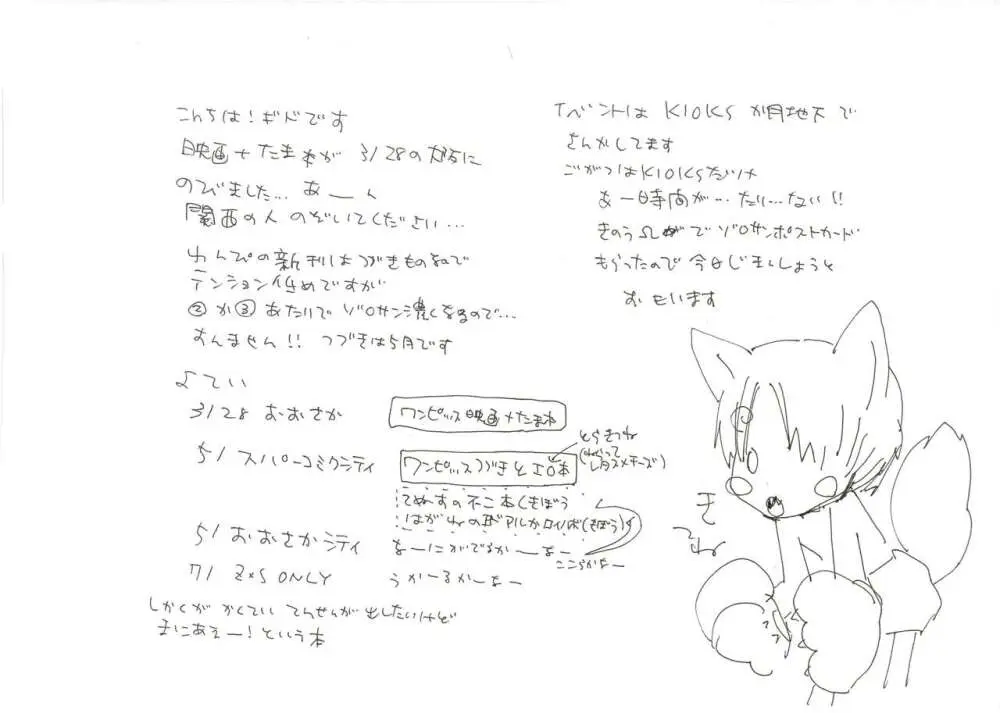 こんちは!ギドです
映画+たま本が 3/28の大阪に
のびました… あーん
関西の人 のぞいてください…
わんぴの新刊はつづきもの系で
テンション低めですが
② か ③ あたりで ゾロサン濃くなるので…
すんません!! つづきは5月です
よてい
3/28 おおさか
ワンピッス映画+たま本
5/1 スパーコミクシティ
ワンピッスつづきと
とらきつね
(わかって レタスメチーズ)
てぬすの不二本(きぼう)
はがれんの アルかロイ本(きぼう)
5/1 おおさかシティ
なーにがでるかーなー
ここらかなー
7/1 Z×S ONLY
うかーるかーなー
しかくが かくてい てんせんが 出したいけど
まにあえー!という本
イベントは K10KS か月地下で
さんかしてます
ごがつはK10KSだけ
あー時間が… たり…ない!!
きのう でゾロサンポストカード
もらったので 今はじましょうと
おもいます
きつね